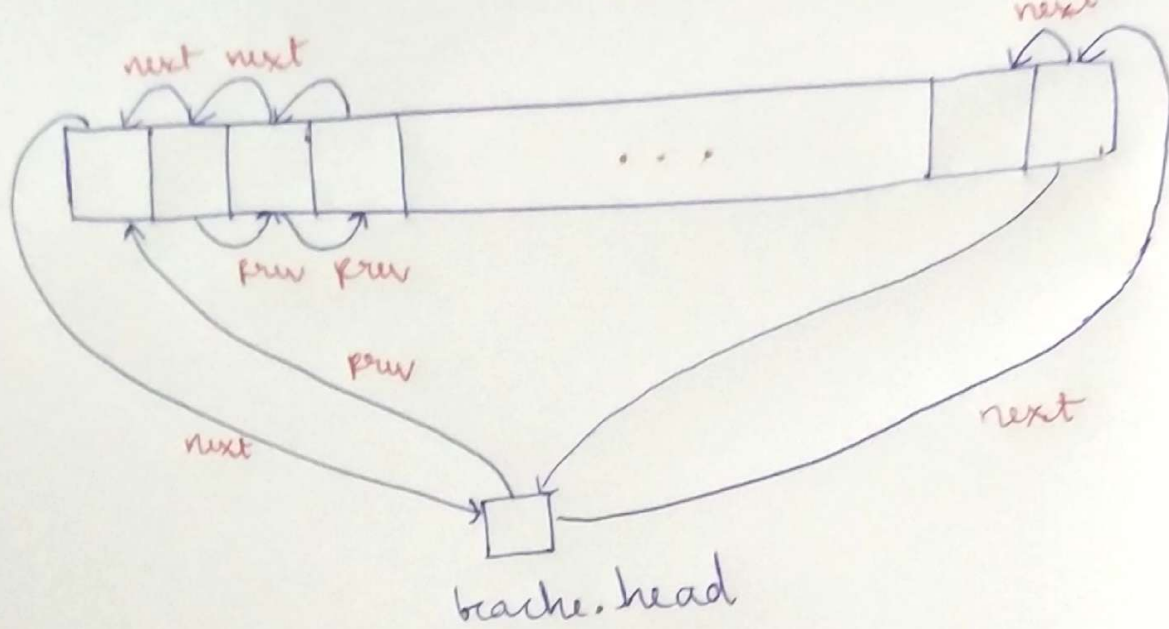 next
next next
. . .
prev prev
prev
next
next
bcache.head